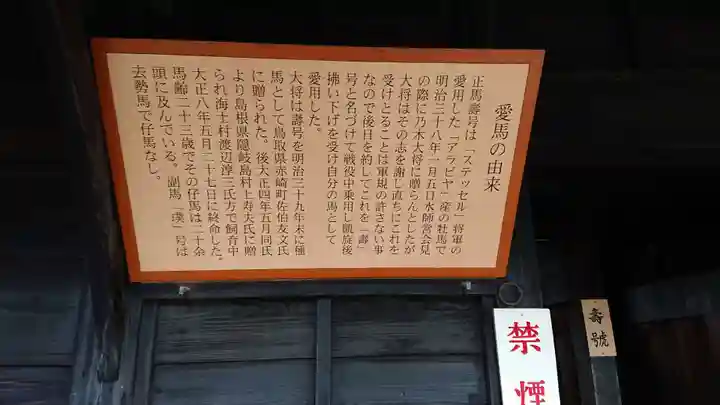 愛馬の由来
正馬壽号は「ステッセル」将軍の
愛用した「アラビヤ」産の牡馬で
明治三十八年一月五日水師営会見
の際に乃木大将に贈らんとしたが
大将はその志を謝し直ちにこれを
受けとることは軍規の許さない事
なので後日を約してこれを「壽」
号と名づけて戦役中乗用し凱旋後
拂い下げを受け自分の馬として
愛用した。
大将は壽号を明治三十九年末に種
馬として鳥取県赤崎町佐伯友文氏
に贈られた。後大正四年五月同氏
より島根県隠岐島村上寿夫氏に贈
られ海士村渡辺淳三氏方で飼育中
大正八年五月二十七日に終命した。
馬齢二十三歳でその仔馬は二十余
頭に及んでいる。副馬「璞」号は
去勢馬で仔馬なし。
禁煙
壽號